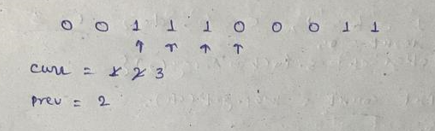 0 0 1 1 1 0 0 0 1 1
↑ ↑ ↑ ↑
curr = 1 2 3
prev = 2